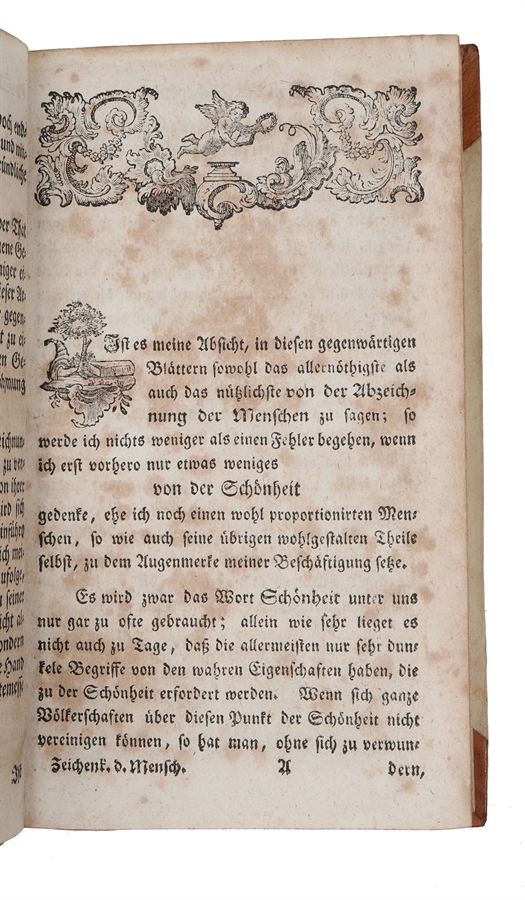 och ende
und mit
ründliche
der That
ene Ge-
niger ei-
ieser Ar-
gegen
t zu ei
en Ge-
ähmung
eichnun-
zu ver-
on ihrer
ird sich
einführen
ich me
zufolge,
t seiner
icht al-
ondern
e Hand
temess-
Ist es meine Absicht, in diesen gegenwärtigen
Blättern sowohl das allernöthigste als
auch das nützlichste von der Abzeich-
nung der Menschen zu sagen; so
werde ich nichts weniger als einen Fehler begehen, wenn
ich erst vorhero nur etwas weniges
von der Schönheit
gedenke, ehe ich noch einen wohl proportionirten Men-
schen, so wie auch seine übrigen wohlgestalten Theile
selbst, zu dem Augenmerke meiner Beschäftigung setze.
Es wird zwar das Wort Schönheit unter uns
nur gar zu ofte gebraucht; allein wie sehr lieget es
nicht auch zu Tage, daß die allermeisten nur sehr dun-
kele Begriffe von den wahren Eigenschaften haben, die
zu der Schönheit erfordert werden. Wenn sich ganze
Völkerschaften über diesen Punkt der Schönheit nicht
vereinigen können, so hat man, ohne sich zu verwun-
Zeichenk. d. Mensch. A dern,